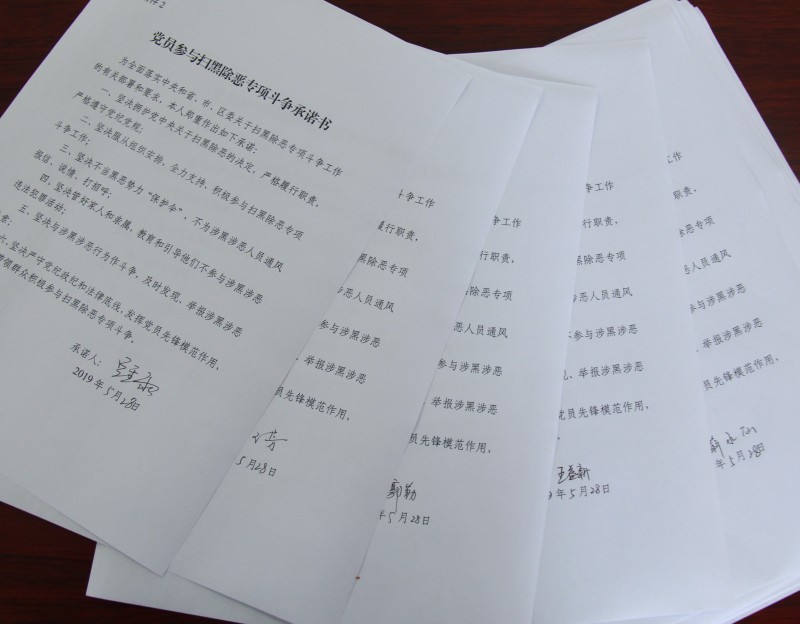 件2
党员参与扫黑除恶专项斗争承诺书
为全面落实中央和省、市、区委关于扫黑除恶专项斗争工作
的有关部署和要求，本人郑重作出如下承诺：
一、坚决拥护党中央关于扫黑除恶的决定，严格履行职责，
严格遵守党纪党规；
二、坚决服从组织安排，全力支持、积极参与扫黑除恶专项
斗争工作；
三、坚决不当黑恶势力“保护伞”，不为涉黑涉恶人员通风
报信、说情、打招呼；
四、坚决管好家人和亲属，教育和引导他们不参与涉黑涉恶
违法犯罪活动；
五、坚决与涉黑涉恶行为作斗争，及时发现、举报涉黑涉恶
六、坚决严守党纪政纪和法律底线，发挥党员先锋模范作用，
带领群众积极参与扫黑除恶专项斗争。
承诺人：
2019年5月28日
斗争工作
履行职责，
黑除恶专项
涉恶人员通风
参与涉黑涉恶
、举报涉黑涉恶
员先锋模范作用，
芳
5月28日
争工作
行职责，
除恶专项
恶人员通风
参与涉黑涉恶
举报涉黑涉恶
员先锋模范作用，
郭勤
年5月28日
争工作
职责，
恶专项
人员通风
不参与涉黑涉恶
、举报涉黑涉恶
党员先锋模范作用，
王益新
年5月28日
工作
责，
专项
员通风
与涉黑涉恶
举报涉黑涉恶
员先锋模范作用，
年5月28日